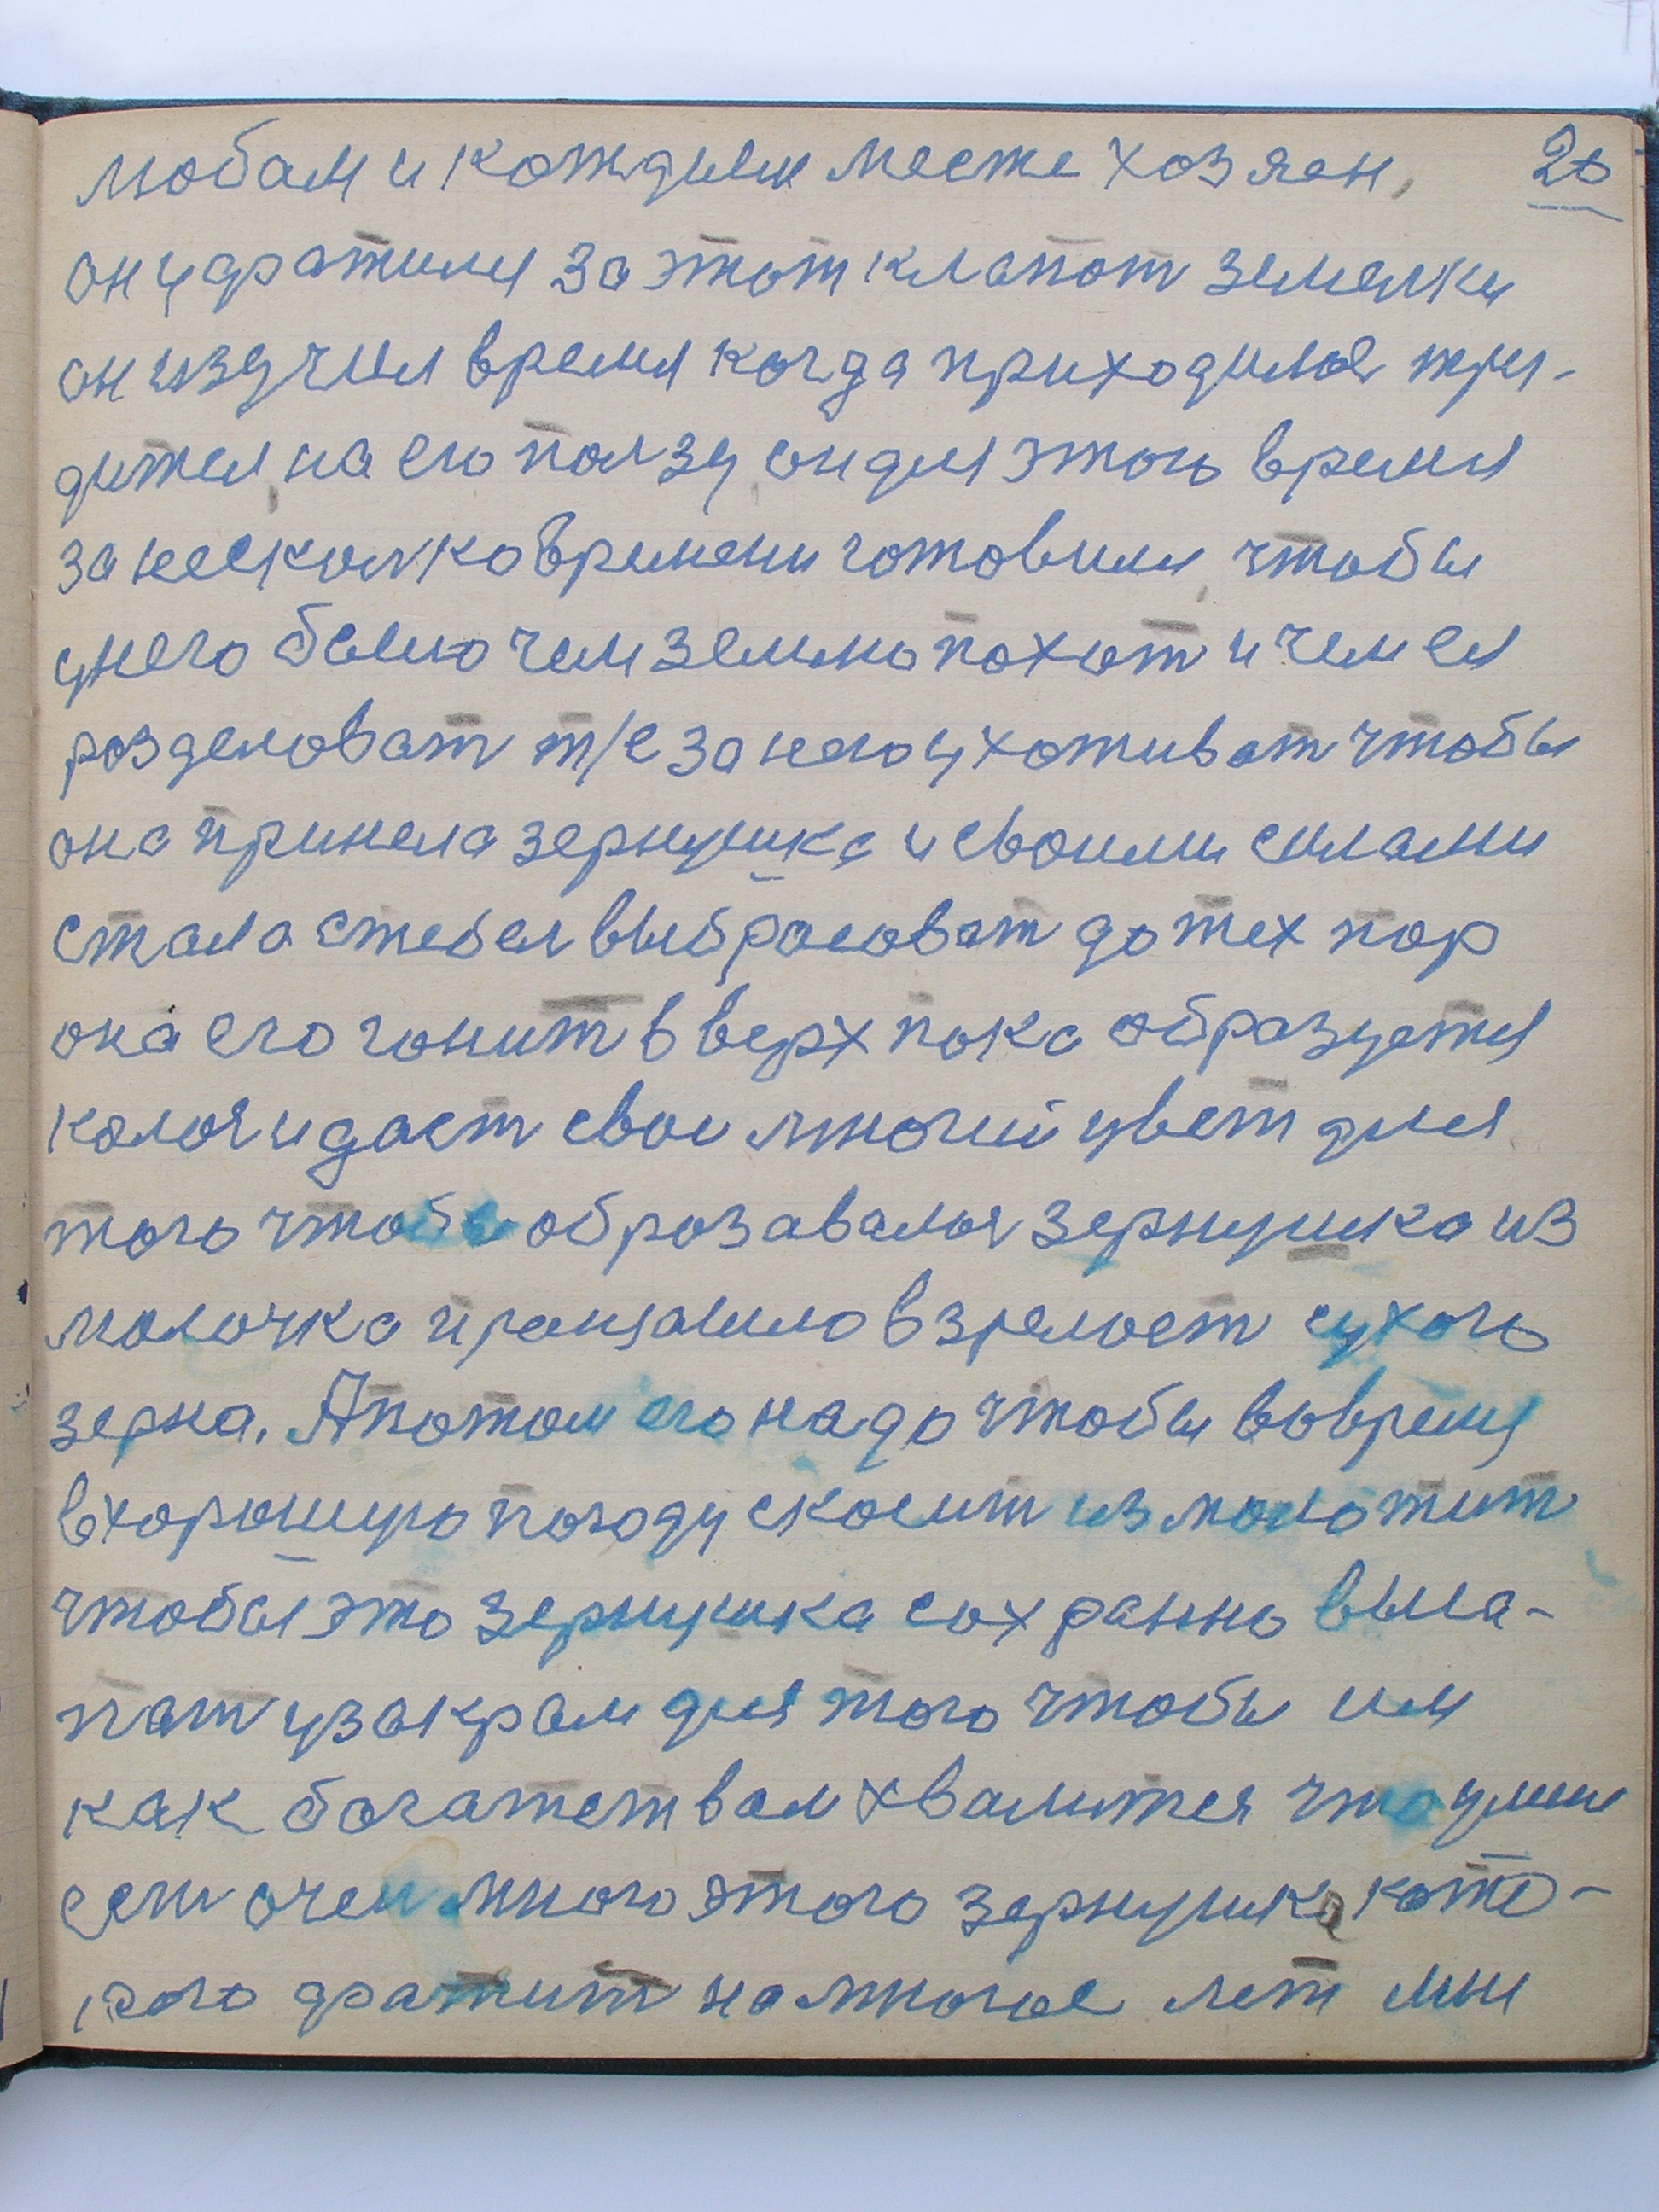 любам и кождым месте хозяен, 20
он ухратился за этот клапот земелки
он изучил время когда приходилос тру-
дится на его ползу, он для этого время
за несколко времени готовился, чтобы
унего было чем землю пахат и чем ея
розделоват т/е за нею ухотиват чтобы
она принела зернушка и своими силами
стала стебел выбрасоват до тех пор
она его гонит вверх пока образуется
колос и даст свои многий цвет для
того чтобы образавалос зернушка из
молочка и в зрелост сухого
зерна. А потом его надо чтобы вовремя
вхорошую погоду скосит измолотит
чтобы это зернушка сохранно вмa-
пат узакрам для того чтобы им
как богатством хвалится что умен
ест очен много этого зернушка, кото-
рого хратит на многое лет мн